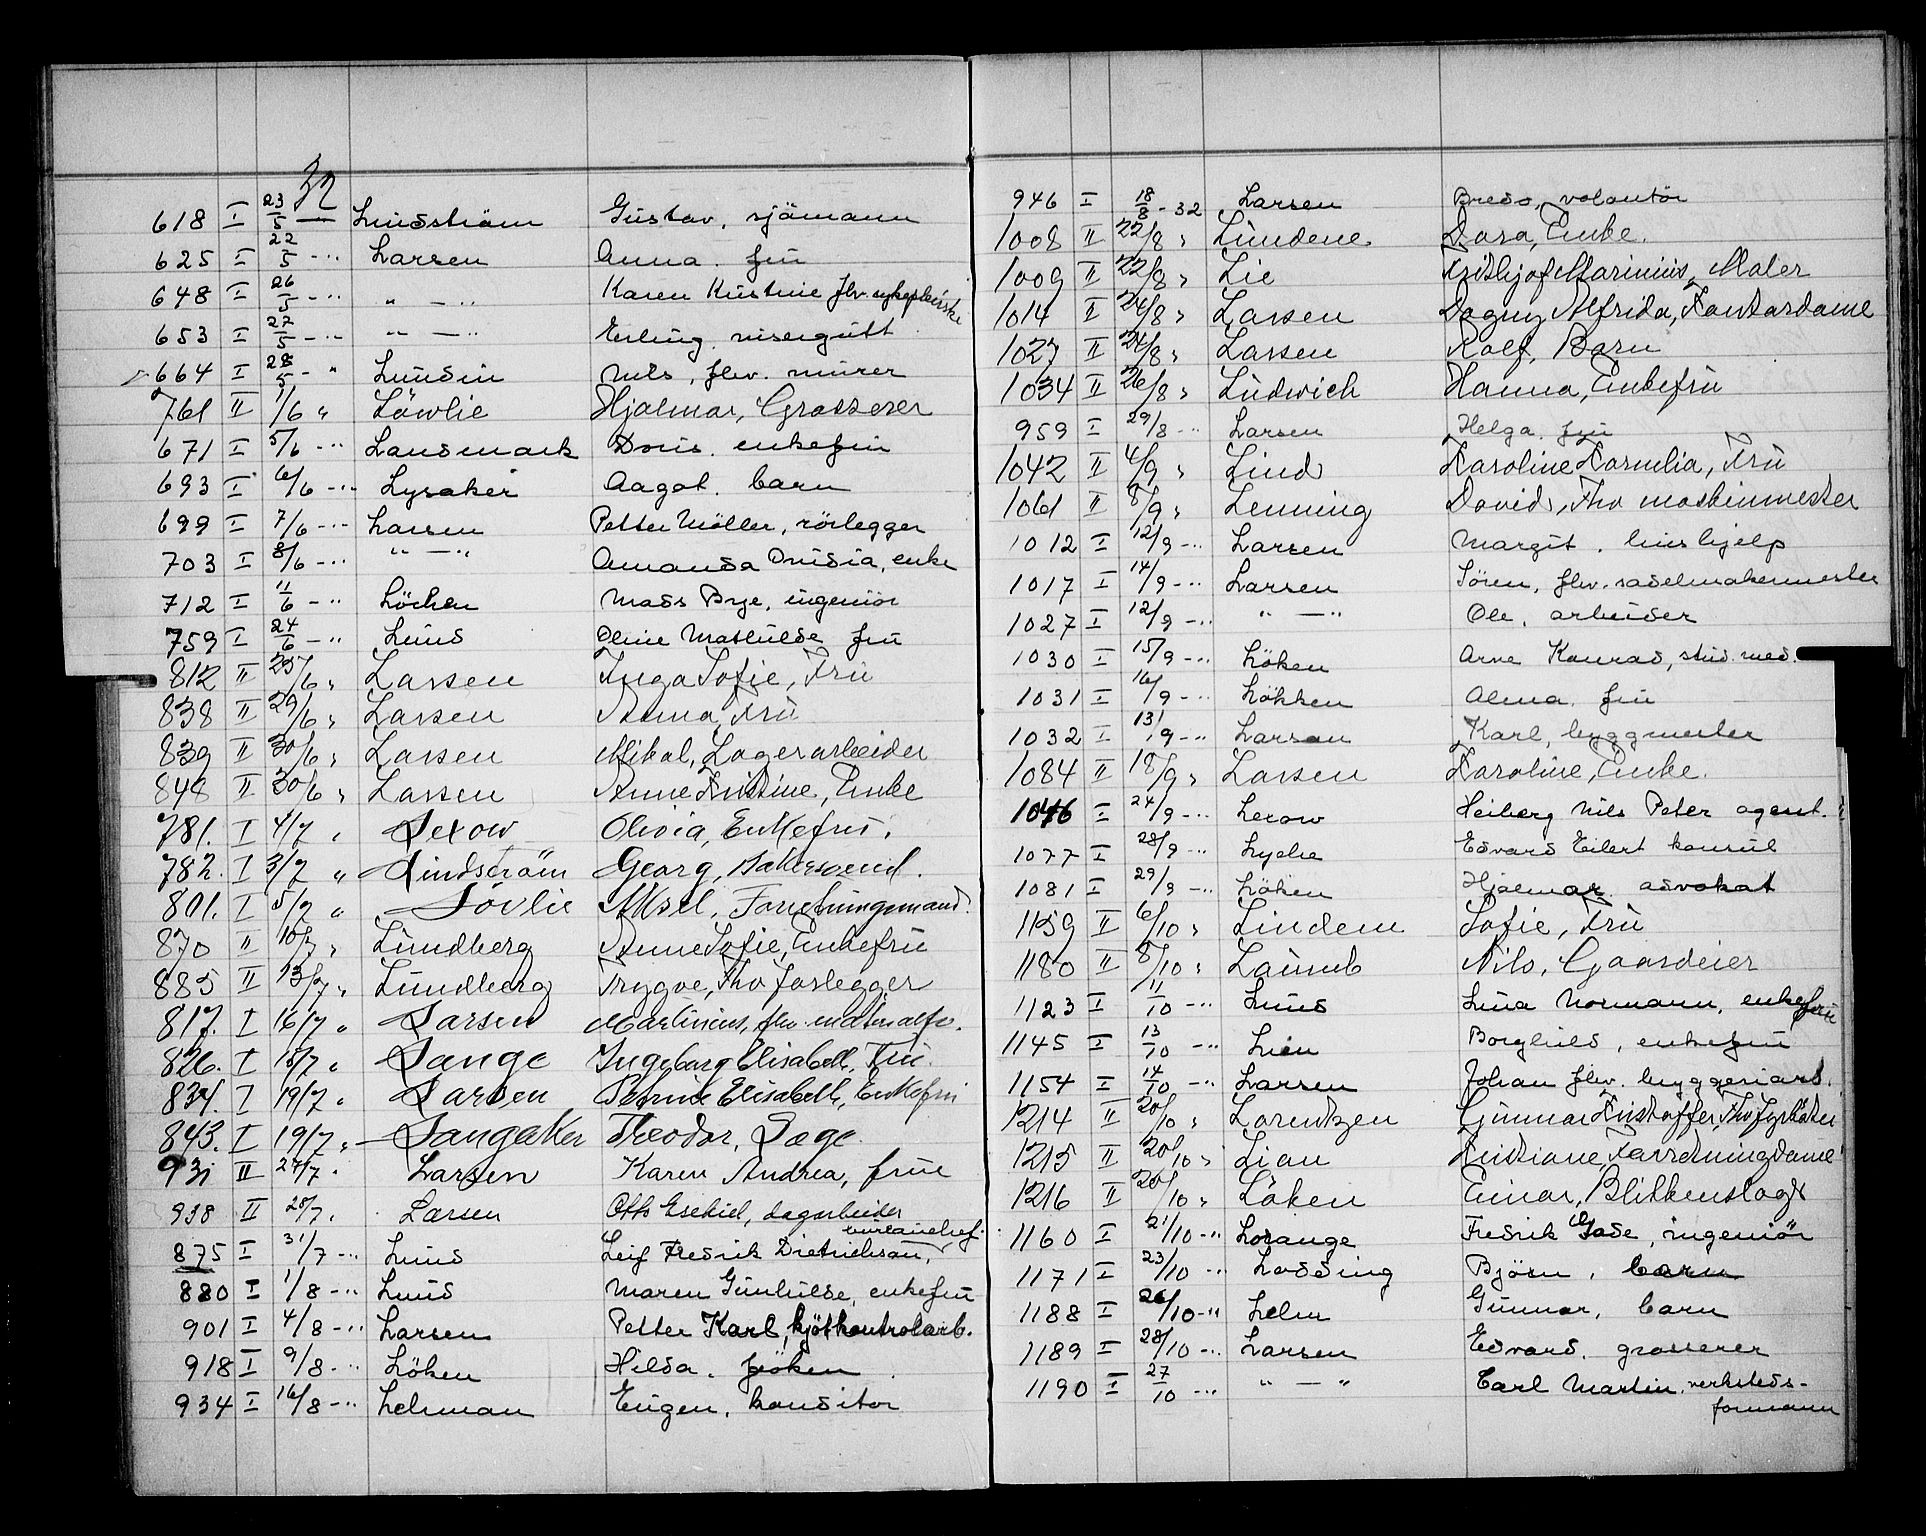 32
618 I 23/5 — Lindström Gustav, sjömann
625 I 22/5 - " Larsen Anna. fru
648 I 26/5 - " " — " Karen Kristine fhv. sykepleierske
653 I 27/5 - " " — " Erling. visergutt
664 I 28/5 - " Lundin Nils, fhv. murer
761 II 1/6 " Löwlie Hjalmar, Grosserer
671 I 5/6 - " Landmark Doris. enkefru
693 I 6/6 - " Lysaker Aagot. barn
699 I 7/6 - " Larsen Petter Möller, rörlegger
703 I 8/6 - " " — " Amanda Drusia, enke
712 I 11/6 - " Löchen Mads Bye, ingeniör
759 I 24/6 - " Lund Oline Mathilde fru
812 II 25/6 " Larsen Inga Sofie, Fru
838 II 29/6 " Larsen Anna, Fru
839 II 30/6 " Larsen Mikal, Lagerarbeider
848 II 30/6 " Larsen Anne Kristine, Enke
781. I 4/7 " Lexow Olivia, Enkefru.
782. I 3/7 " Lindström Georg, Bakersvend.
801. I 5/7 " Lövlie Aksel, Forretningsmand.
870 II 10/7 " Lundberg Anne Sofie, Enkefru
885 II 13/7 " Lundberg Trygve, Fhv Jaslegger
817. I 16/7 " Larsen Martinius, fhv. materialfv.
826. I 15/7 " Lange Ingeborg Elisabeth, Fru.
834. I 19/7 " Larsen Petrine Elisabeth, Enkefru
843. I 19/7 " Langaker Theodor, Læge.
931 II 27/7 " Larsen Karen Andrea, frue
938 II 28/7 " Larsen Otto Esekiel, dagarbeider
875 I 31/7 - " Lund Leif Fredrik Dietrichson, bureauchef.
880 I 1/8 - " Lund Maren Gunhilde, enkefru
901 I 4/8 - " Larsen Petter Karl, kjötkontrolarb.
918 I 9/8 - " Löken Hilda. fröken
934 I 16/8 - " Lehman Eugen, konditor
946 I 18/8 - 32 Larsen Bredo, volontör
1008 II 22/8 " Lundene. Dora, Enke.
1009 II 22/8 " Lie Fritkjof Marinius, Maler
1014 II 24/8 " Larsen Dagny Alfrida, Kontordame
1027 II 24/8 " Larsen Rolf, Barn
1034 II 26/8 " Ludwich Hanna, Enkefru
959 I 29/8 - " Larsen Helga. fru
1042 II 4/9 " Lind Karoline Kornelia, Fru
1061 II 8/9 " Lenning David, Fhv maskinmester
1012 I 12/9 - " Larsen Margit. hushjelp
1017 I 14/9 - " Larsen Sören, fhv. sadelmakermester
1027 I 12/9 - " " — " Ole, arbeider
1030 I 15/9 - " Löken Arne Konrad, stud. med.
1031 I 16/9 - " Lökken Alma. fru
1032 I 13/9 - " Larsen Karl, byggmester
1084 II 18/9 " Larsen Karoline, Enke.
1046 I 24/9 - " Lexow Heiberg Nils Peter agent.
1077 I 28/9 - " Lyche Edvard Eilert konsul
1081 I 29/9 - " Löken Hjalmar advokat
1159 II 6/10 " Lindem Sofie, Fru
1180 II 8/10 " Laumb Nils, Gaardeier
1123 I 11/10 - " Lund Lina Normann, enkefrue
1145 I 13/10 - " Lien Borghild, enkefru
1154 I 14/10 - " Larsen Johan fhv. bryggeriarb.
1214 II 20/10 " Lorentzen Gunnar Kristoffer, Fhv Fyrböter
1215 II 20/10 " Lian Kristiane, Forretningsdame
1216 II 20/10 " Löken Einar, Blikkenslager
1160 I 21/10 - " Lorange Fredrik Gade, ingeniör
1171 I 23/10 - " Lodding Björn, barn
1188 I 26/10 - " Lehn Gunnar, barn
1189 I 28/10 - " Larsen Edvard. grosserer
1190 I 27/10 - " " — " Carl Martin. verksteds-
formann